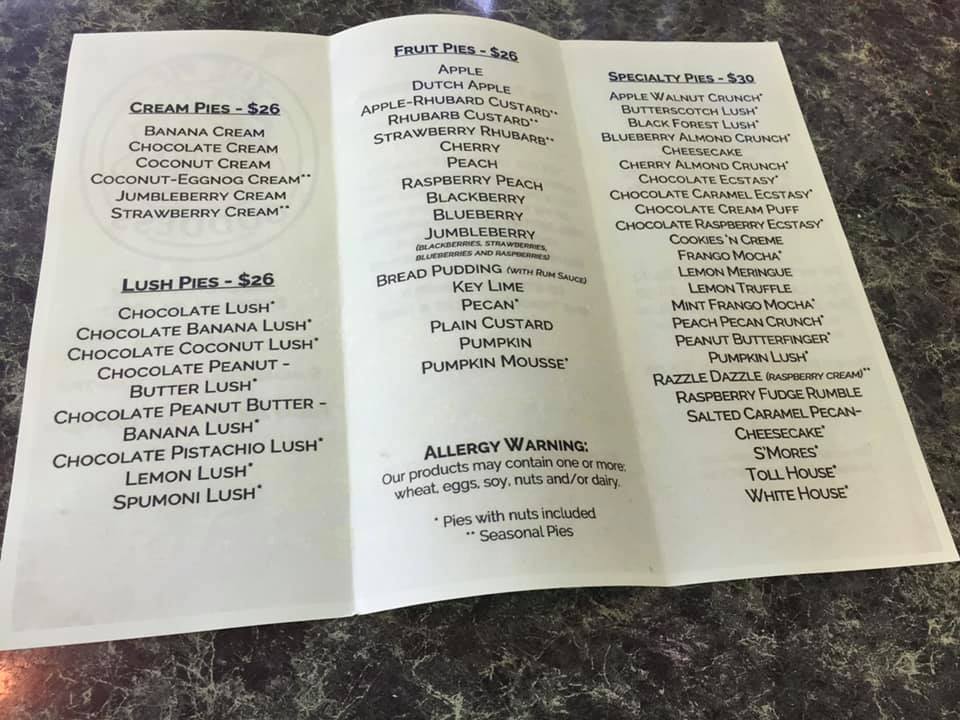 CREAM PIES - $26
BANANA CREAM
CHOCOLATE CREAM
COCONUT CREAM
COCONUT-EGGNOG CREAM**
JUMBLEBERRY CREAM
STRAWBERRY CREAM**
LUSH PIES - $26
CHOCOLATE LUSH*
CHOCOLATE BANANA LUSH*
CHOCOLATE COCONUT LUSH*
CHOCOLATE PEANUT -
BUTTER LUSH*
CHOCOLATE PEANUT BUTTER -
BANANA LUSH*
CHOCOLATE PISTACHIO LUSH*
LEMON LUSH*
SPUMONI LUSH*
FRUIT PIES - $26
APPLE
DUTCH APPLE
APPLE-RHUBARD CUSTARD**
RHUBARB CUSTARD**
STRAWBERRY RHUBARB**
CHERRY
PEACH
RASPBERRY PEACH
BLACKBERRY
BLUEBERRY
JUMBLEBERRY
(BLACKBERRIES, STRAWBERRIES,
BLUEBERRIES AND RASPBERRIES)
BREAD PUDDING (WITH RUM SAUCE)
KEY LIME
PECAN*
PLAIN CUSTARD
PUMPKIN
PUMPKIN MOUSSE*
ALLERGY WARNING:
Our products may contain one or more:
wheat, eggs, soy, nuts and/or dairy.
* Pies with nuts included
** Seasonal Pies
SPECIALTY PIES - $30
APPLE WALNUT CRUNCH*
BUTTERSCOTCH LUSH*
BLACK FOREST LUSH*
BLUEBERRY ALMOND CRUNCH*
CHEESECAKE
CHERRY ALMOND CRUNCH*
CHOCOLATE ECSTASY*
CHOCOLATE CARAMEL ECSTASY*
CHOCOLATE CREAM PUFF
CHOCOLATE RASPBERRY ECSTASY*
COOKIES 'N CREME
FRANGO MOCHA*
LEMON MERINGUE
LEMON TRUFFLE
MINT FRANGO MOCHA*
PEACH PECAN CRUNCH*
PEANUT BUTTERFINGER*
PUMPKIN LUSH*
RAZZLE DAZZLE (RASPBERRY CREAM)**
RASPBERRY FUDGE RUMBLE
SALTED CARAMEL PECAN-
CHEESECAKE*
S'MORES*
TOLL HOUSE*
WHITE HOUSE*